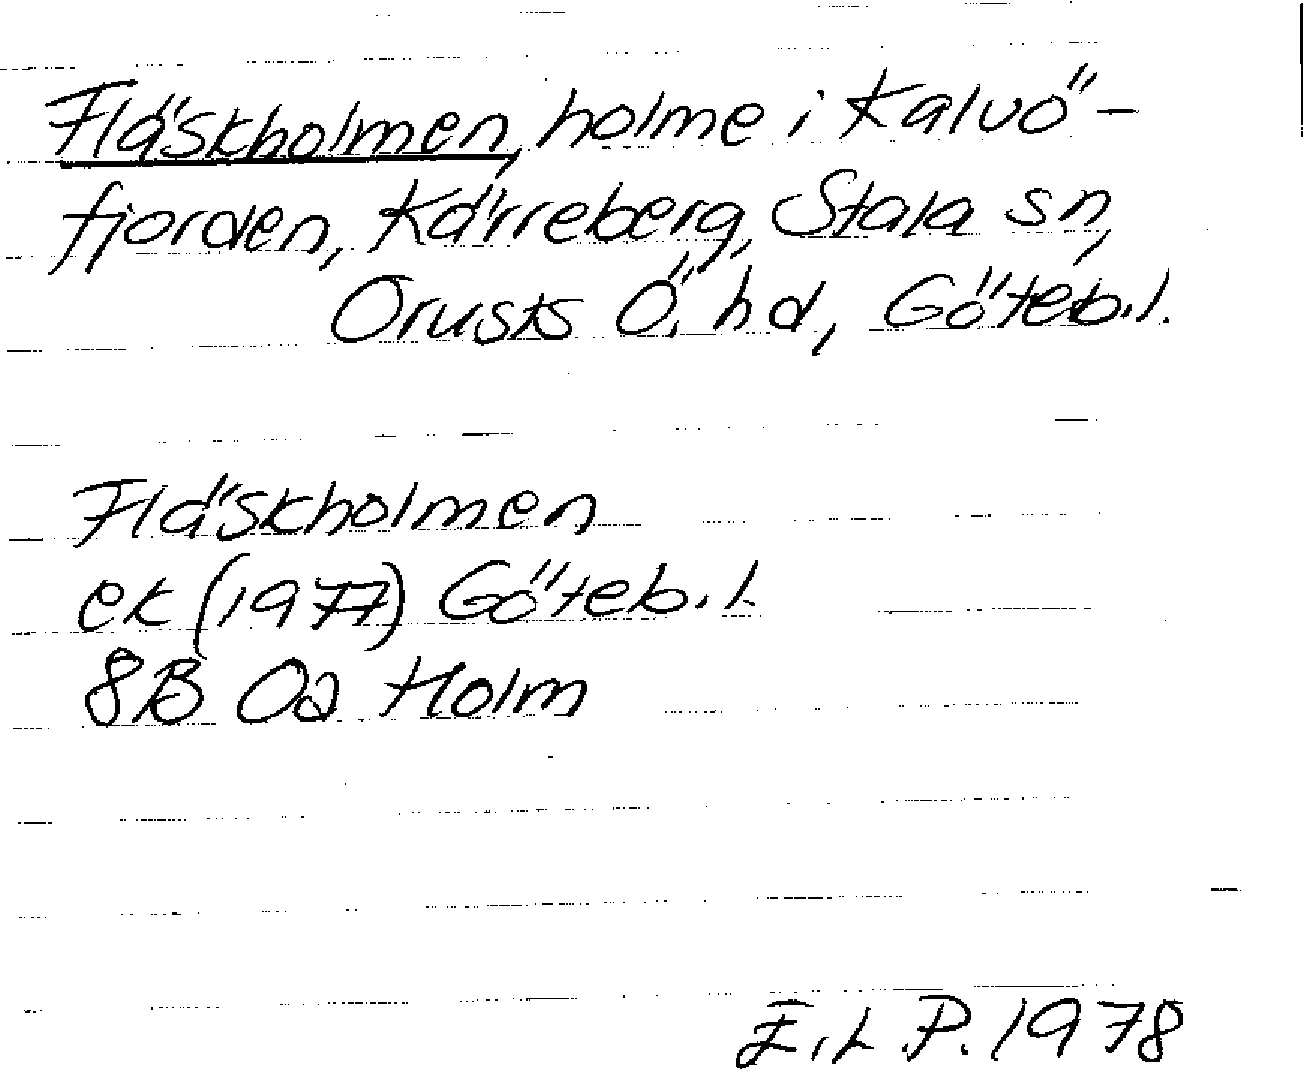 Fläskholmen, holme i Kalvö-
fjorden, Kärreberg, Stala sn,
Orusts Ö. hd, Göteb.l.
Fläskholmen
ek (1977) Göteb.l.
8B 0a Holm
E.L.P. 1978